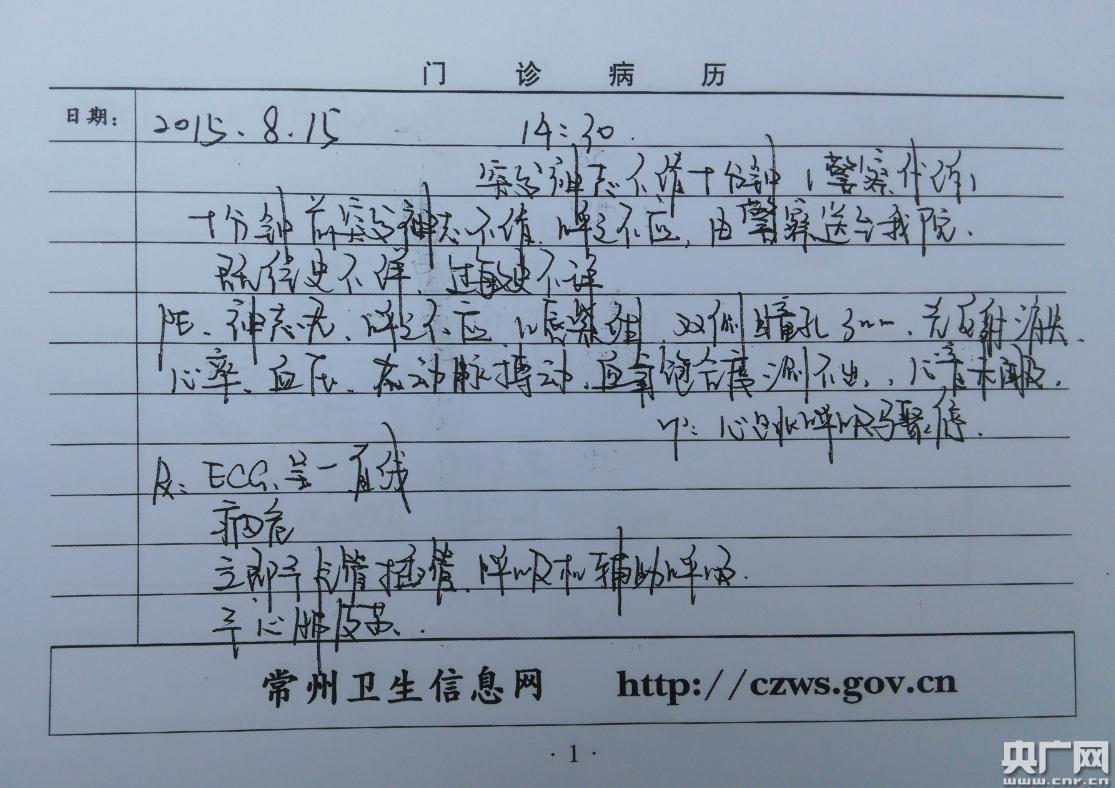 门诊病历
日期： 2015.8.15 14:30
突发神志不清十分钟（警察代诉）
十分钟前突发神志不清，呼之不应，由警察送至我院。
既往史不详，过敏史不详
PE、神志无，呼之不应，口唇紫绀，双侧瞳孔3mm，光反射消失，
心率、血压、大动脉搏动、血氧饱合度测不出，心音未闻及。
心跳呼吸骤停.
Rx: ECG、呈一直线
病危
立即予气管插管，呼吸机辅助呼吸.
予心肺复苏.
常州卫生信息网 http://czws.gov.cn
·1·
央广网
www.cnr.cn